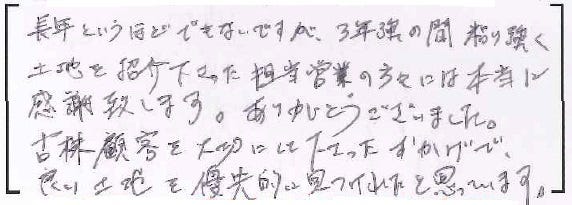 長年というほどできないですが、3年強の間 粘り強く
土地を紹介下さった担当営業の方々には本当に
感謝致します。ありがとうございました。
古株顧客を大切にして下さったおかげで、
良い土地を優先的に見つけれたと思っています。